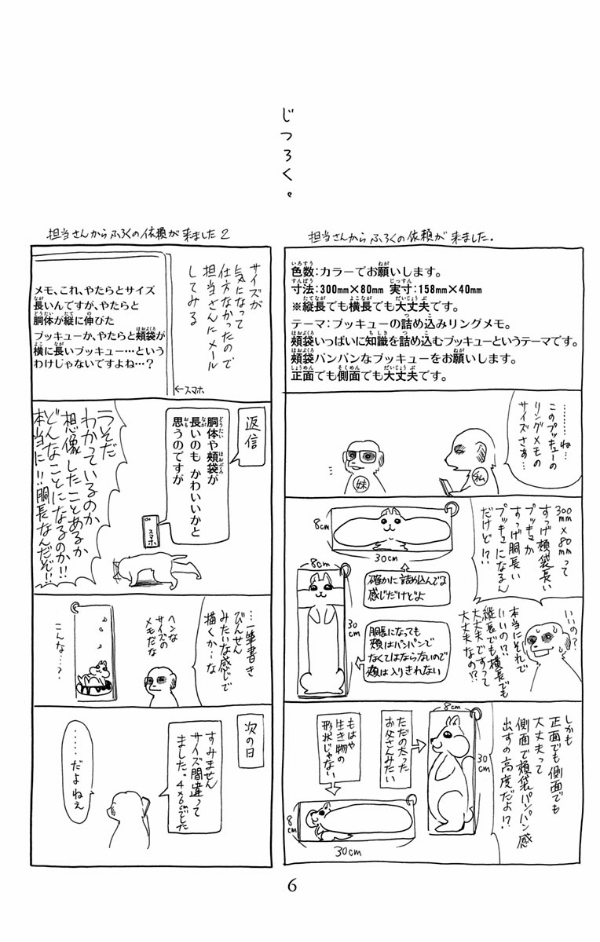 じつろく。
担当さんからふろくの依頼が来ました。
色数：カラーでお願いします。
寸法：300mm×80mm 実寸：158mm×40mm
※縦長でも横長でも大丈夫です。
テーマ：ブッキューの詰め込みリングメモ。
頬袋いっぱいに知識を詰め込むブッキューというテーマです。
頬袋パンパンなブッキューをお願いします。
正面でも側面でも大丈夫です。
………ね…
このブッキューの
リングメモの
サイズさぁ…
妹
300mm×80mmって
すっげ頬袋長い
ブッキューか
すっげ胴長い
ブッキューになるん
だけど!?
8cm
30cm
確かに詰め込んでる
感じだけどよ
8cm
30cm
胴長になっても
頬はパンパンで
なくてはならないので
頬は入りきれない
いいの？
本当にそれで
いいの!?
縦長でも横長でも
大丈夫ですって
大丈夫なの!?
しかも
正面でも側面でも
大丈夫って
側面で頬袋パンパン感
出すの高度だよ!?
8cm
30cm
ただの太った
お父さんみたい
もはや
生き物の
形状じゃない
8cm
30cm
担当さんからふろくの依頼が来ました2
サイズが
気になって
仕方なかったので
担当さんにメール
してみる
メモ、これ、やたらとサイズ
長いんですが、やたらと
胴体が縦に伸びた
ブッキューか、やたらと頬袋が
横に長いブッキュー…という
わけじゃないですよね…？
←スマホ
返信
胴体や頬袋が
長いのも かわいいかと
思うのですが
うそだ
わかっているのか
想像したことあるか
どんなことになるのか!!
本当に!!胴長なんだぞ!!
…一筆書き
びんせん
みたいな感じで
描くか…な
ヘンな
サイズの
メモだな
こんな…？
次の日
すみません
サイズ間違って
ました。
……
だよねぇ
6